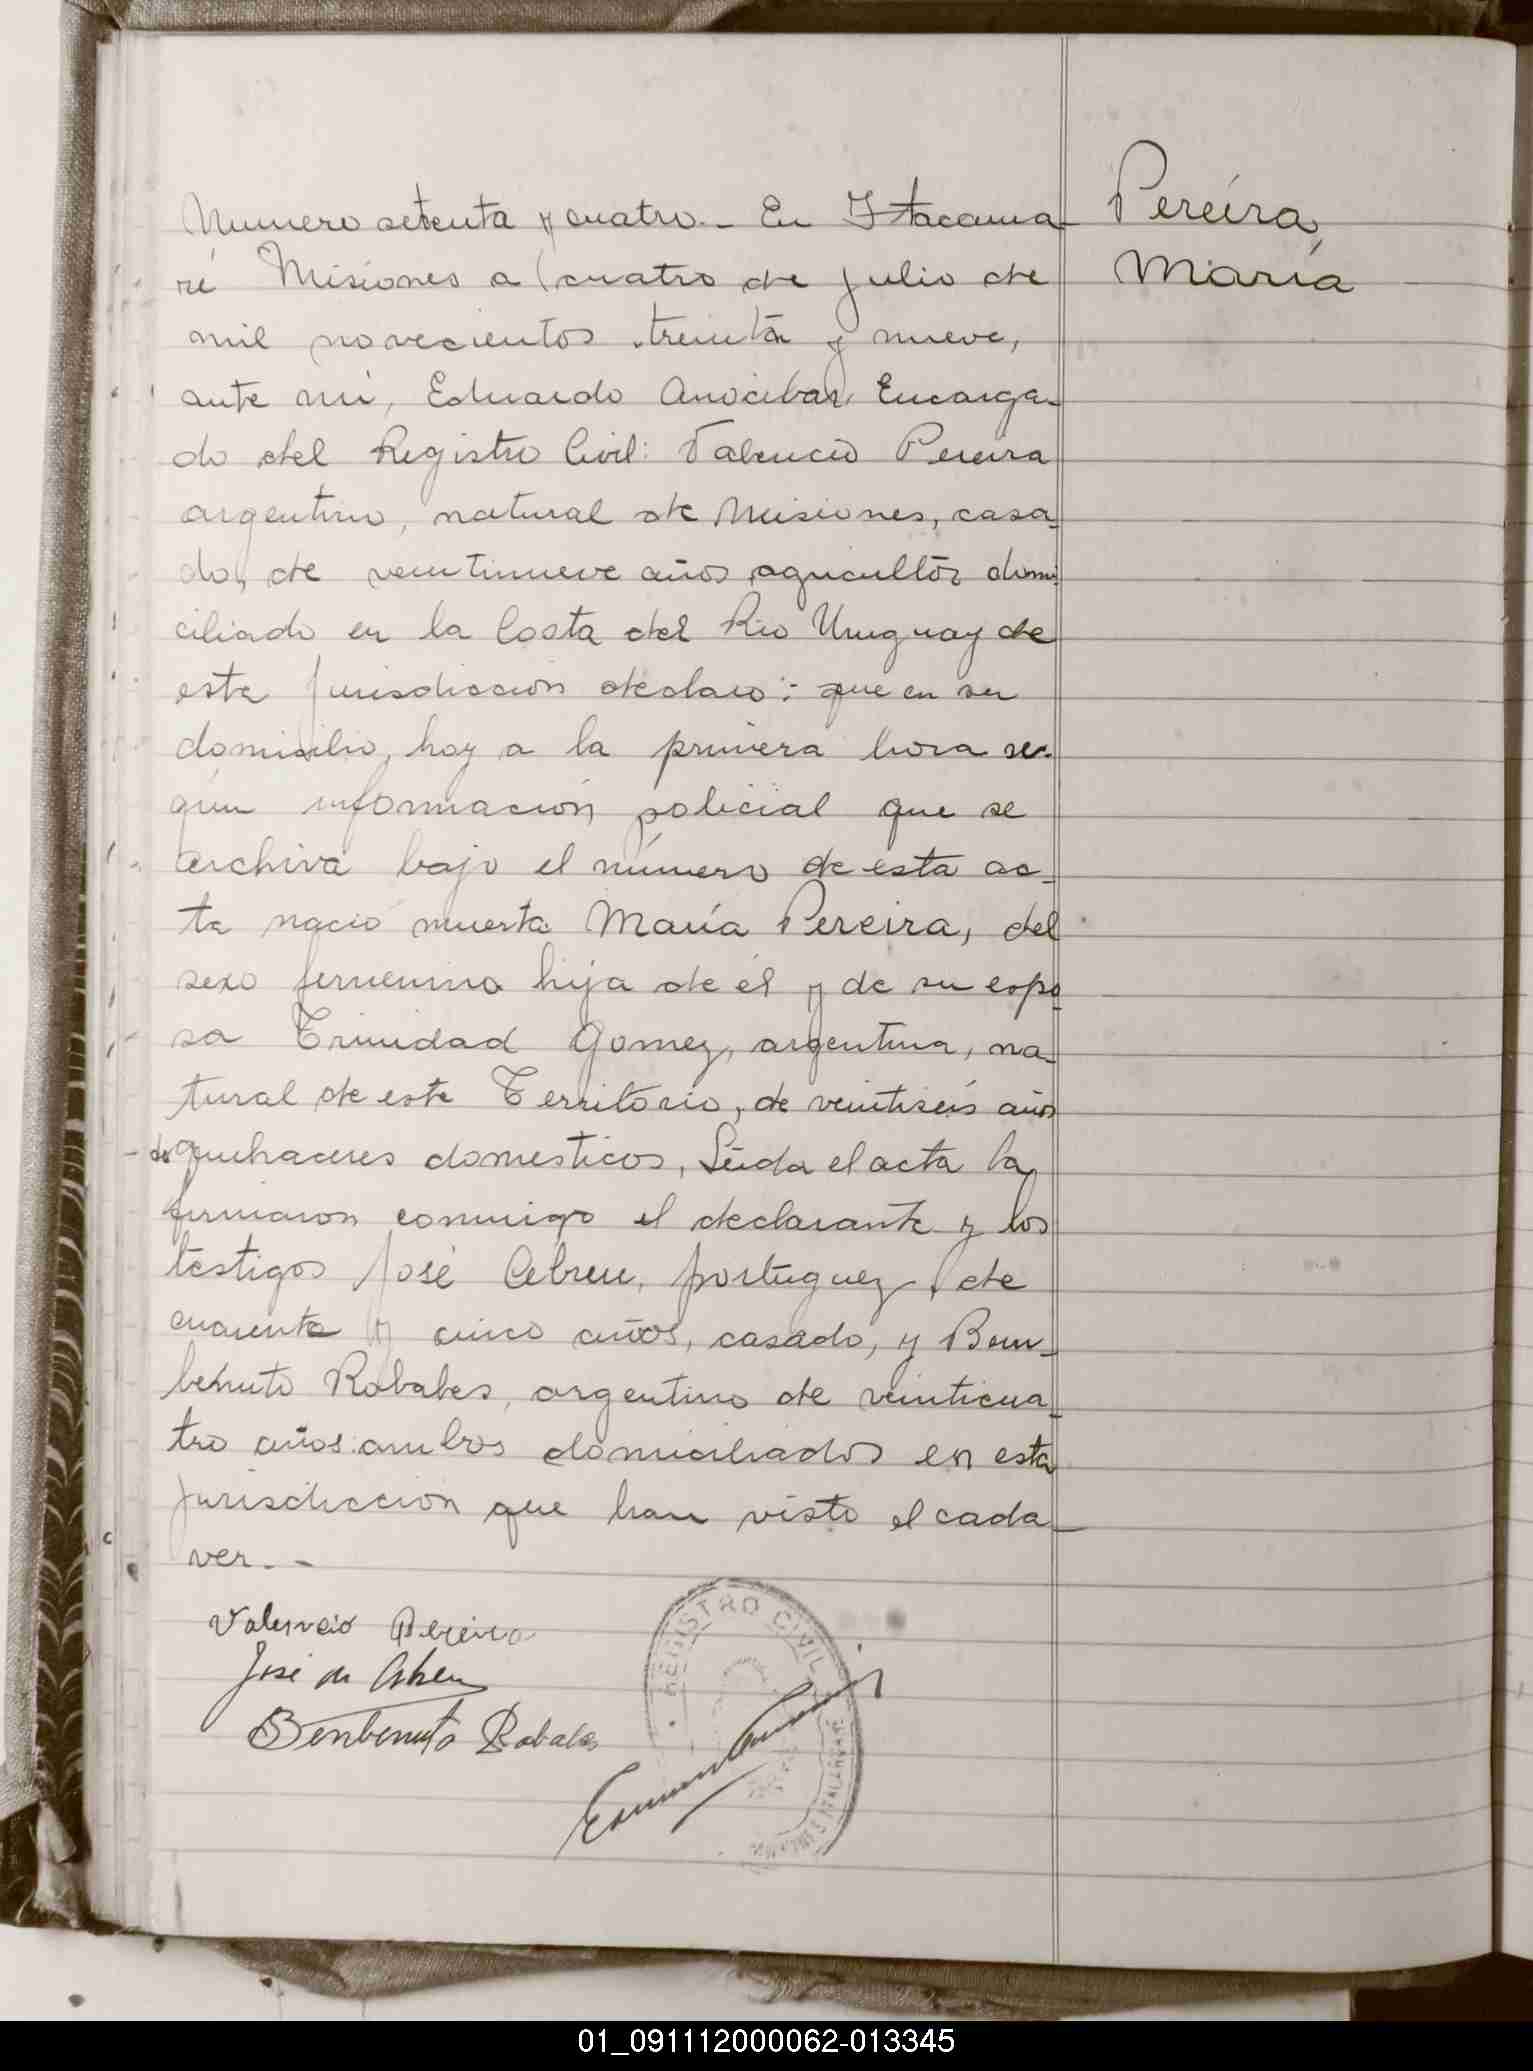 Numero setenta y cuatro.- En Itacaua-
ré Misiones a cuatro de julio de
mil novecientos treinta y nueve,
ante mi, Eduardo Anocibar, Encarga-
do del Registro Civil: Valencio Pereira
argentino, natural de Misiones, casa-
do, de veintinueve años agricultor domi-
ciliado en la Costa del Rio Uruguay de
esta jurisdiccion declaro: que en su
domicilio, hoy a la primera hora se-
gún información policial que se
archiva bajo el número de esta ac-
ta nació muerta María Pereira, del
sexo femenino hija de él y de su espo-
sa Trinidad Gomez, argentina, na-
tural de este Territorio, de veintiséis años
de quehaceres domesticos, Leida el acta la
firmaron conmigo el declarante y los
testigos José Abreu, portuguez, de
cuarenta y cinco años, casado, y Bem-
benuto Robales, argentino de veinticua-
tro años ambos domiciliados en esta
jurisdiccion que han visto el cada-
ver.-
Valencio Pereira
José de Abreu
Benbenuto Robales
Pereira,
María
REGISTRO CIVIL
01_091112000062-013345